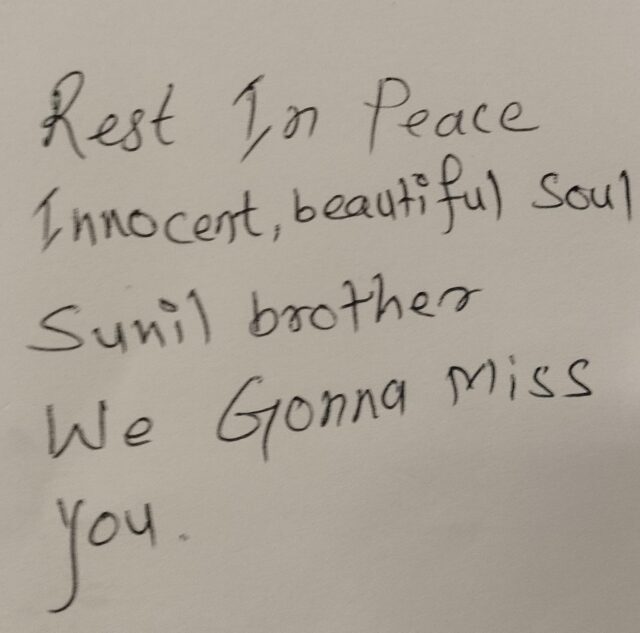 Rest In Peace
Innocent, beautiful soul
Sunil brother
We Gonna Miss
you.